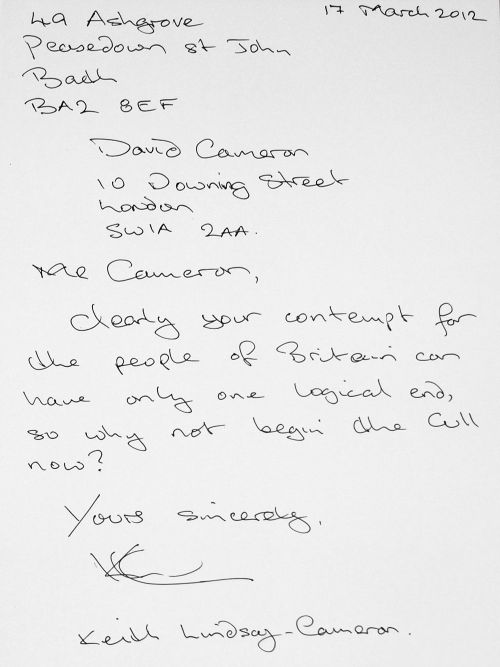 49 Ashgrove
17 March 2012
Peasedown St John
Bath
BA2 8EF
David Cameron
10 Downing Street
London
SW1A 2AA.
Mr Cameron,
Clearly your contempt for
the people of Britain can
have only one logical end,
so why not begin the cull
now?
Yours sincerely,
Keith Lindsay-Cameron.